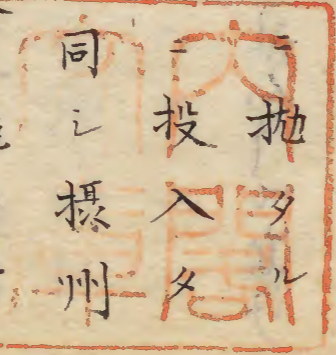 ニ抛タル
ニ投入タ
同シ摂州